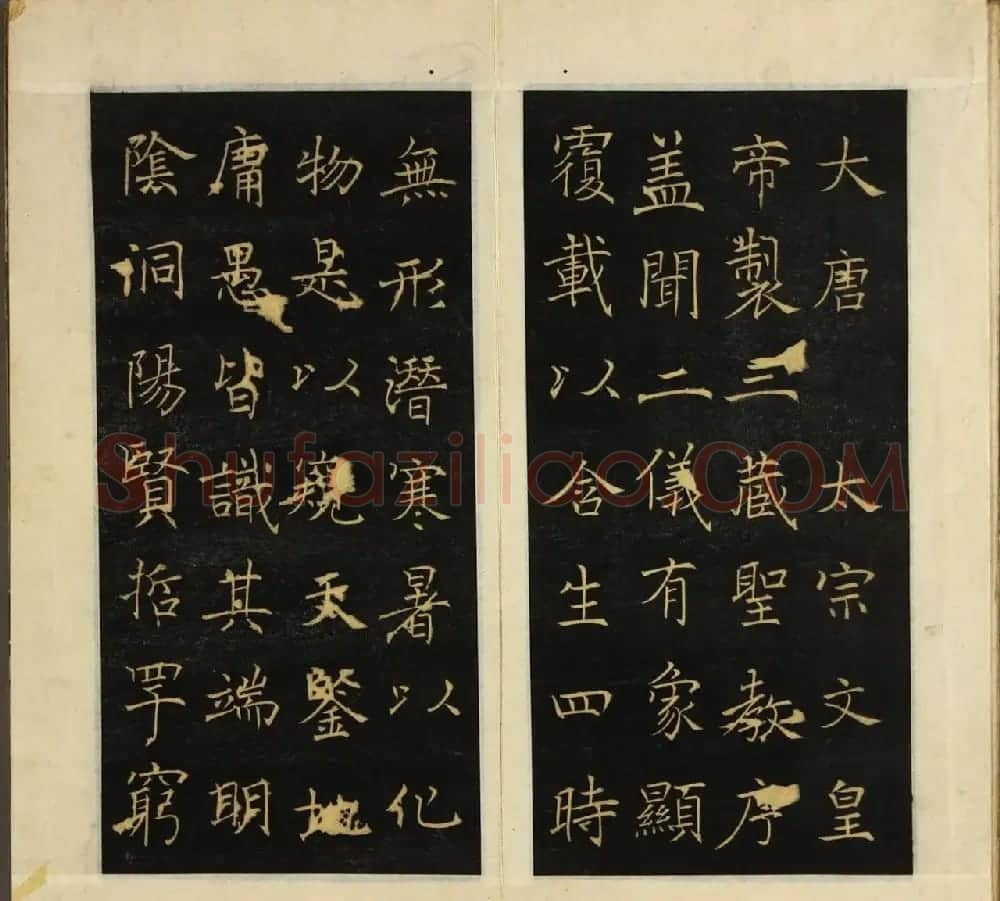 大唐太宗文皇
帝製三藏聖教序
盖聞二儀有象顯
覆載以含生四時
無形潛寒暑以化
物是以窺天鑒地
庸愚皆識其端明
陰洞陽賢哲罕窮
Shufaziliao.COM